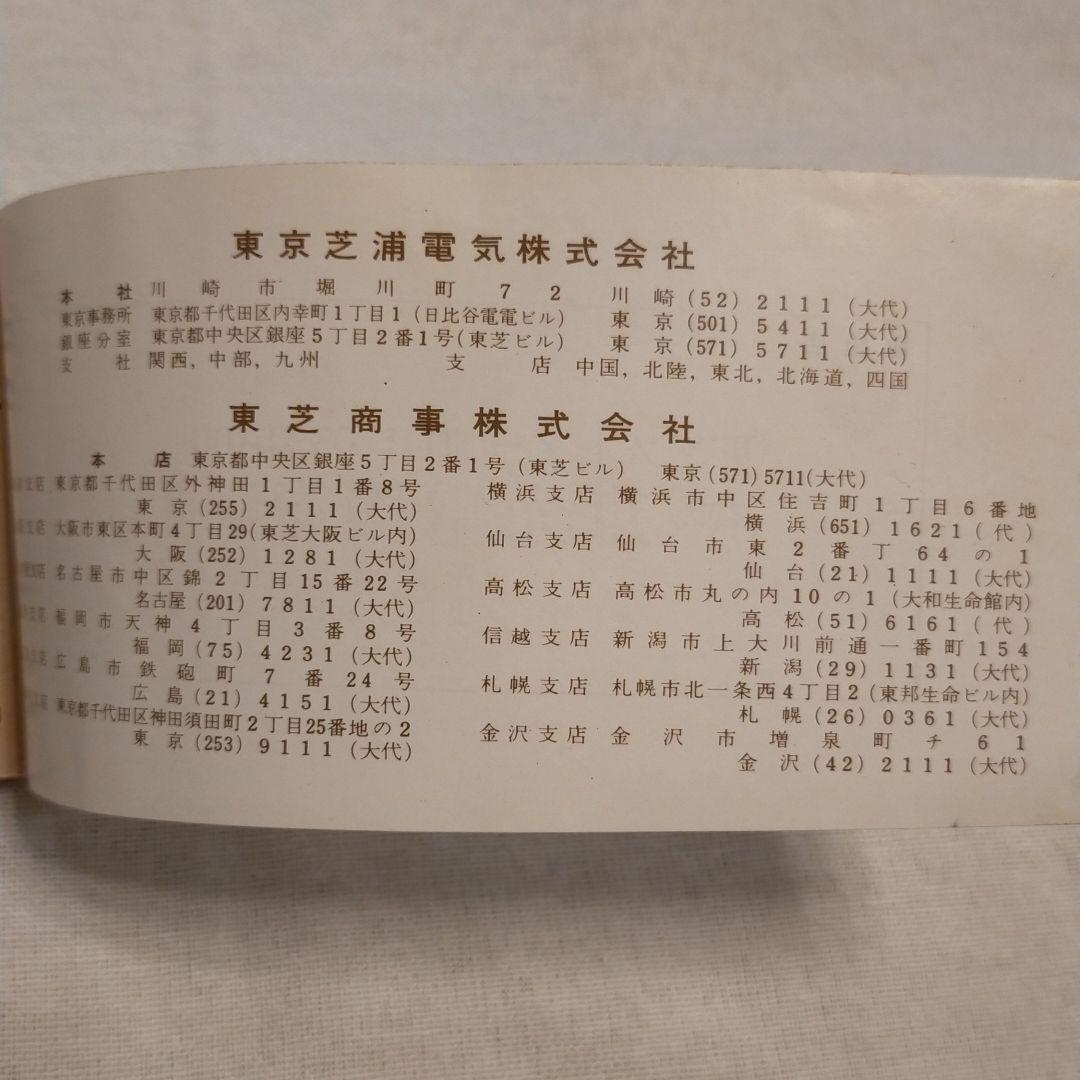 東京芝浦電気株式会社
本社 川崎市堀川町72 川崎(52)2111(大代)
東京事務所 東京都千代田区内幸町1丁目1(日比谷電電ビル) 東京(501)5411(大代)
銀座分室 東京都中央区銀座5丁目2番1号(東芝ビル) 東京(571)5711(大代)
支社 関西,中部,九州 支店 中国,北陸,東北,北海道,四国
東芝商事株式会社
本店 東京都中央区銀座5丁目2番1号(東芝ビル) 東京(571)5711(大代)
支店 東京都千代田区外神田1丁目1番8号
東京(255)2111(大代)
支店 大阪市東区本町4丁目29(東芝大阪ビル内)
大阪(252)1281(大代)
支店 名古屋市中区錦2丁目15番22号
名古屋(201)7811(大代)
支店 福岡市天神4丁目3番8号
福岡(75)4231(大代)
支店 広島市鉄砲町7番24号
広島(21)4151(大代)
東京都千代田区神田須田町2丁目25番地の2
東京(253)9111(大代)
横浜支店 横浜市中区住吉町1丁目6番地
横浜(651)1621(代)
仙台支店 仙台市東2番丁64の1
仙台(21)1111(大代)
高松支店 高松市丸の内10の1(大和生命館内)
高松(51)6161(代)
信越支店 新潟市上大川前通一番町154
新潟(29)1131(大代)
札幌支店 札幌市北一条西4丁目2(東邦生命ビル内)
札幌(26)0361(大代)
金沢支店 金沢市増泉町チ61
金沢(42)2111(大代)